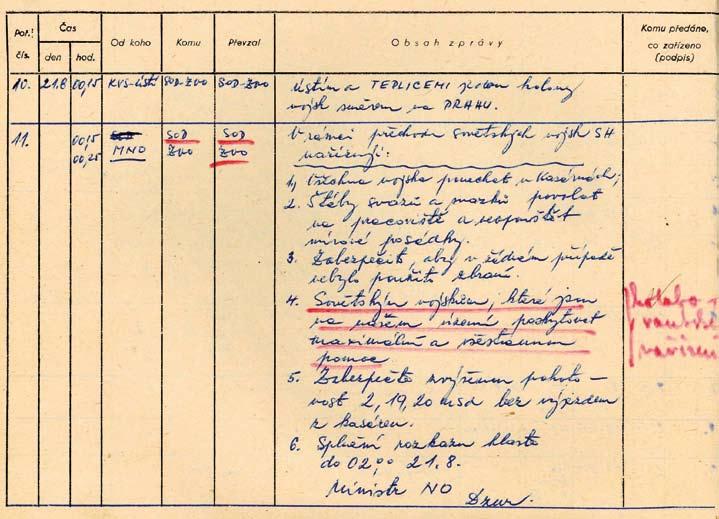 Poř. čís.
Čas
den
hod.
Od koho
Komu
Převzal
Obsah zprávy
Komu předáno, co zařízeno (podpis)
10. 21.8 00,15 KVS-Ústí SOD-ZVO SOD-ZVO Ústím a TEPLICEMI jedou kolony
vojsk směrem na PRAHU.
11. 00,15 SOD SOD SOD V rámci přechodu sovětských vojsk SH
00,25 MNO ZVO ZVO nařizuji:
1, Všechna vojska ponechat v Kasárnách;
2. Štáby svazů a svazků povolat
na pracoviště a neopouštět
mírové posádky.
3. Zabezpečit, aby v žádném případě
nebylo použito zbraní.
4. Sovětským vojskům, které jsou
na našem území poskytovat
maximální a všestrannou
pomoc.
5. Zabezpečte zvýšenou pohoto-
vost 2, 19, 20 msd bez výjezdem
z kasáren.
6. Splnění rozkazu hlaste
do 02,00 21.8.
Ministr NO
Dzur.
nařízení